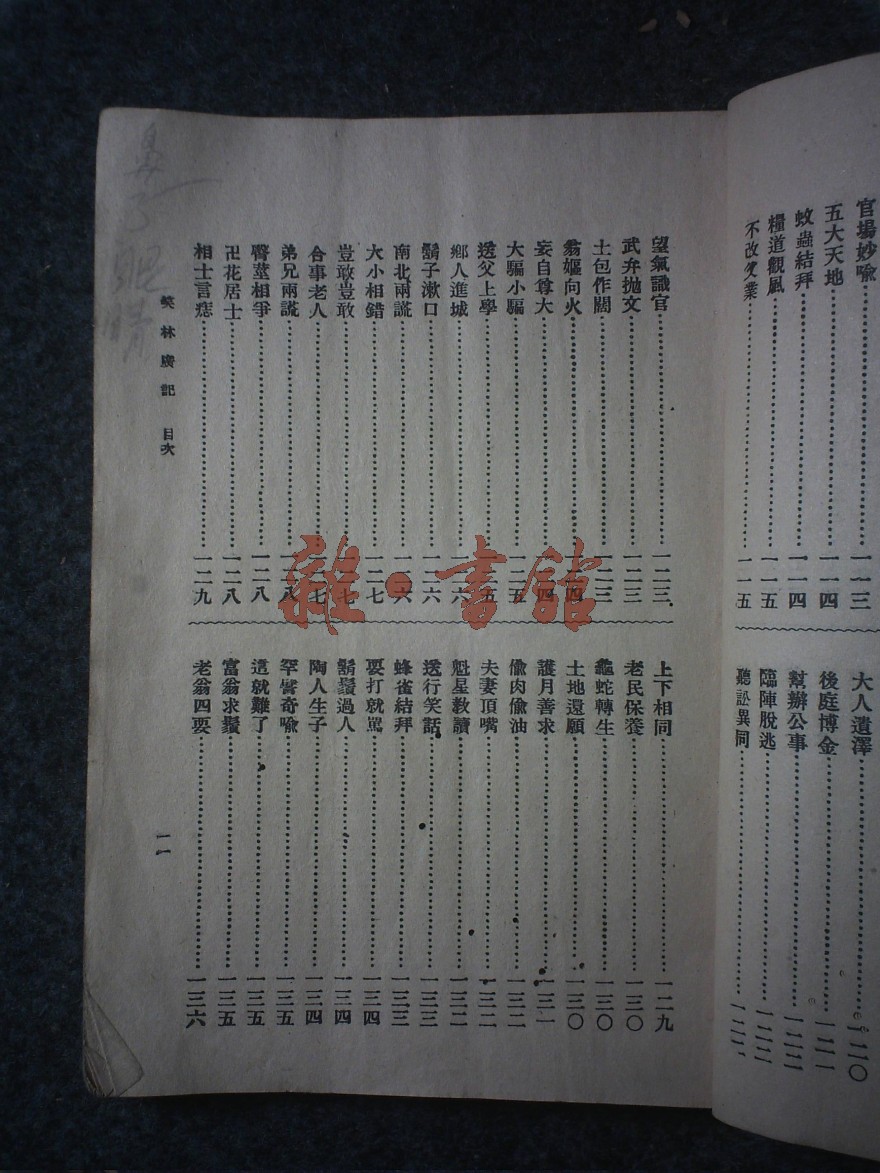 官場妙喩…一一三
五大天地…一一四
蚊蟲結拜…一一四
糧道觀風…一一五
不改父業…一一五
大人遺澤…一二〇
後庭博金
幫辦公事
臨陣脫逃
聽訟異同
望氣識官…一二三
武弁拋文…一二三
土包作闊…一二三
翁嫗向火…一二四
妄自尊大…一二四
大騙小騙…一二五
送父上學…一二五
鄉人進城…一二六
鬍子漱口…一二六
南北兩謊…一二六
大小相錯…一二七
豈敢豈敢…一二七
合事老人…一二七
弟兄兩謊…一二八
臀莖相爭…一二八
卍花居士…一二八
相士言痣…一二九
上下相同…一二九
老民保養…一三〇
龜蛇轉生…一三〇
土地還願…一三〇
護月善求…一三一
偸肉偸油…一三二
夫妻頂嘴…一三二
魁星教讀…一三二
送行笑話…一三三
蜂雀結拜…一三三
要打就罵…一三四
鬍鬚過人…一三四
陶人生子…一三四
罕譬奇喩…一三五
這就難了…一三五
富翁求鬚…一三五
老翁四要…一三六
笑林廣記 目次
一一
雜·書館